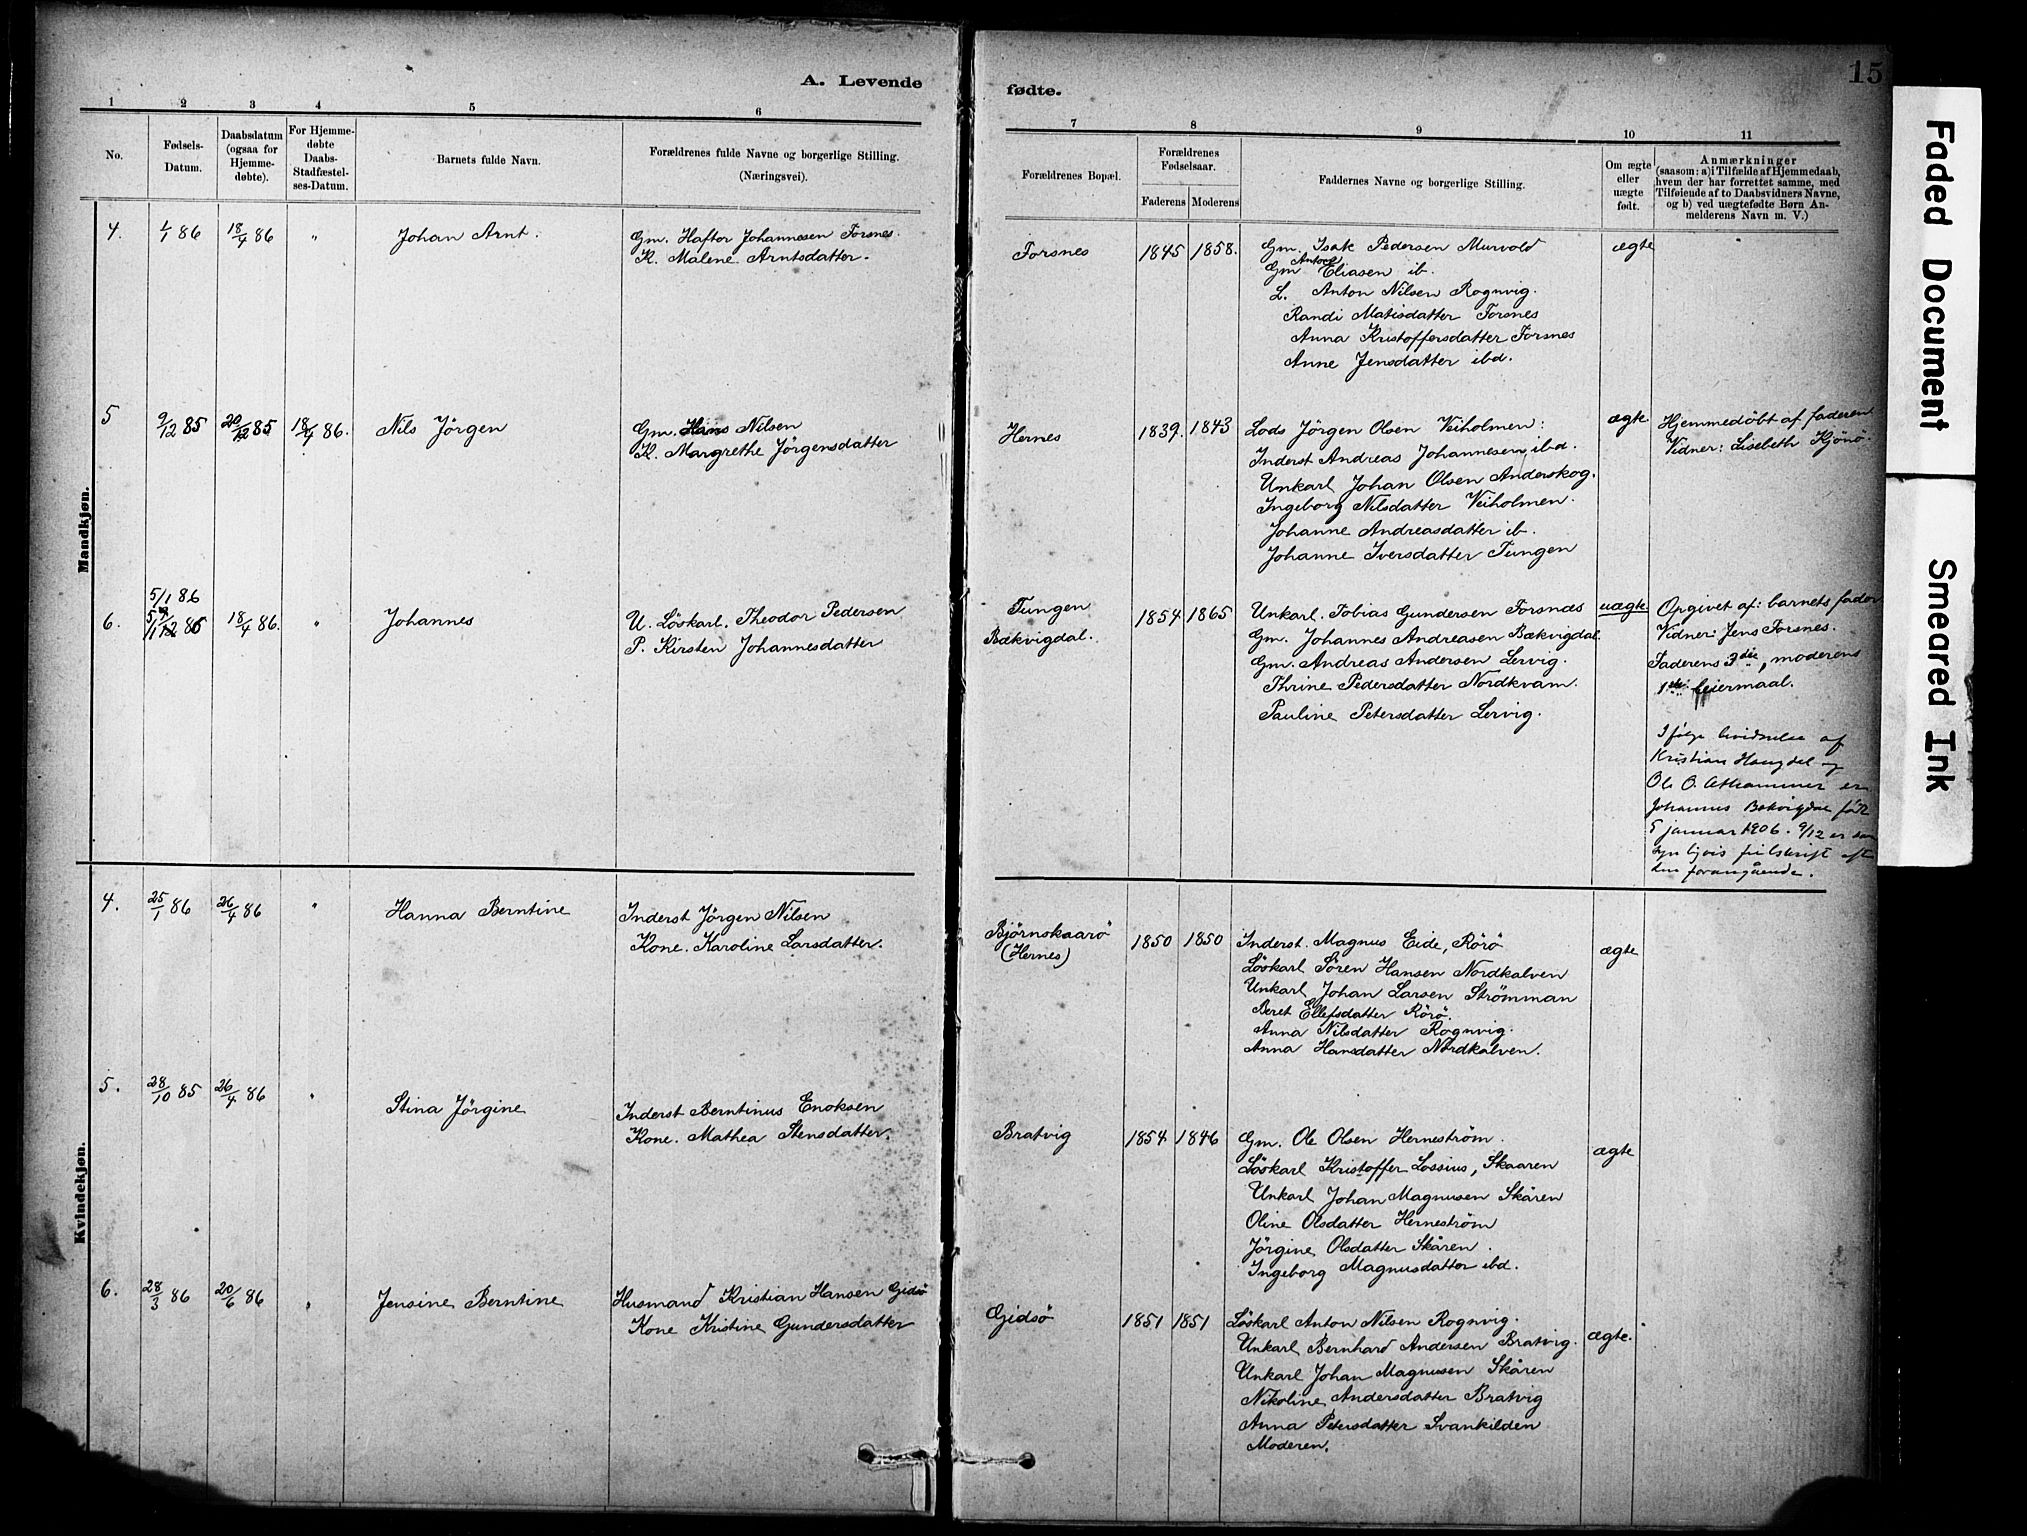 A. Levende
fødte.
15
1 2 3 4 5 6
7 8 9 10 11
No.
Fødsels-
Datum.
Daabsdatum
(ogsaa for
Hjemme-
døbte).
For Hjemme-
døbte
Daabs-
Stadfæstel-
ses-Datum.
Barnets fulde Navn.
Forældrenes fulde Navne og borgerlige Stilling.
(Næringsvei).
Forældrenes Bopæl.
Forældrenes
Fødselsaar.
Faderens Moderens
Faddernes Navne og borgerlige Stilling.
Om ægte
eller
uægte
født.
Anmærkninger
(saasom: a) i Tilfælde af Hjemmedaab,
hvem der har forrettet samme, med
Tilføiende af to Daabsvidners Navne,
og b) ved uægtefødte Børn An-
melderens Navn m. V.)
Mandkjøn.
4. 1/1 86 18/4 86 " Johan Arnt.
Gm. Haftor Johannesen Forsnes.
K. Malene Arntsdatter.
Forsnes 1845 1858.
Gm. Isak Pedersen Murvold
Anton
Gm Eliasen ib.
L. Anton Nilsen Rognvig.
Randi Matisdatter Forsnes
Anna Kristoffersdatter Forsnes
Anne Jensdatter ibd.
ægte
5 9/12 85 20/12 85 18/4 86. Nils Jörgen
Gm. Hans Nilsen
K. Margrethe Jörgensdatter
Hernes 1839. 1843
Lods Jörgen Olsen Veiholmen:
Inderst Andreas Johannesen ibd.
Unkarl Johan Olsen Anderskog.
Ingeborg Nilsdatter Veiholmen.
Johanne Andreasdatter ib.
Johanne Iversdatter Tungen
ægte
Hjemmedøbt af faderen
Vidner: Lisebeth Kjönö.
5/1 86
6. 18/4 86. " Johannes
U. Löskarl. Theodor Pedersen
P. Kirsten Johannesdatter
Tungen
Bækvigdal.
1854 1865
Unkarl. Tobias Gundersen Forsnæs
Gm. Johannes Andreasen Bækvigdal.
Gm. Andreas Andersen Lervig.
Thrine Pedersdatter Nordkvam.
Pauline Petersdatter Lervig.
uægte
Opgivet af: barnets fader
Vidner: Jens Forsnes.
Faderens 3die, moderens
1ste leiermaal.
Ifølge bevidnelse af
Kristian Haugdal og
Ole O. er
Johannes Bækvigdal født
5 januar 1906. 9/12 er san
synligvis feilskrift efter
den foregående.
Kvindekjøn.
4. 25/1 86 26/4 86 " Hanna Berntine
Inderst Jörgen Nilsen
Kone. Karoline Larsdatter.
Bjørnskaarö
(Hernes)
1850 1850
Inderst. Magnus Eide, Rörö
Löskarl Sören Hansen Nordkalven
Unkarl Johan Larsen Strömman
Beret Ellefsdatter Rörö.
Anna Nilsdatter Rognvig.
Anna Hansdatter Nordkalven.
ægte
5. 28/10 85 26/4 86 " Stina Jörgine
Inderst Berntinus Enoksen
Kone. Mathea Stensdatter.
Bratvig 1854 1846
Gm. Ole Olsen Herneström.
Löskarl Kristoffer Lossius, Skaaren
Unkarl Johan Magnusen Skåren
Oline Olsdatter Herneström
Jörgine Olsdatter Skåren.
Ingeborg Magnusdatter ibd.
ægte
6. 28/3 86 20/6 86 " Jensine Berntine
Husmand Kristian Hansen Gidsö
Kone Kristine Gundersdatter
Gidsö 1851 1851
Löskarl Anton Nilsen Rognvig.
Unkarl Bernhard Andersen Bratvig.
Unkarl Johan Magnusen Skåren
Nikoline Andersdatter Bratvig
Anna Petersdatter Svankilden
Moderen.
ægte.
Faded Document
Smeared Ink